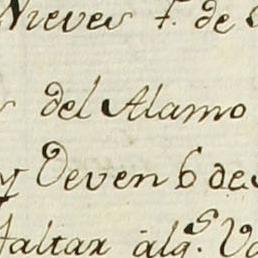 Nieves f. de
del Alamo
y Deven 6 de
faltar alg.s